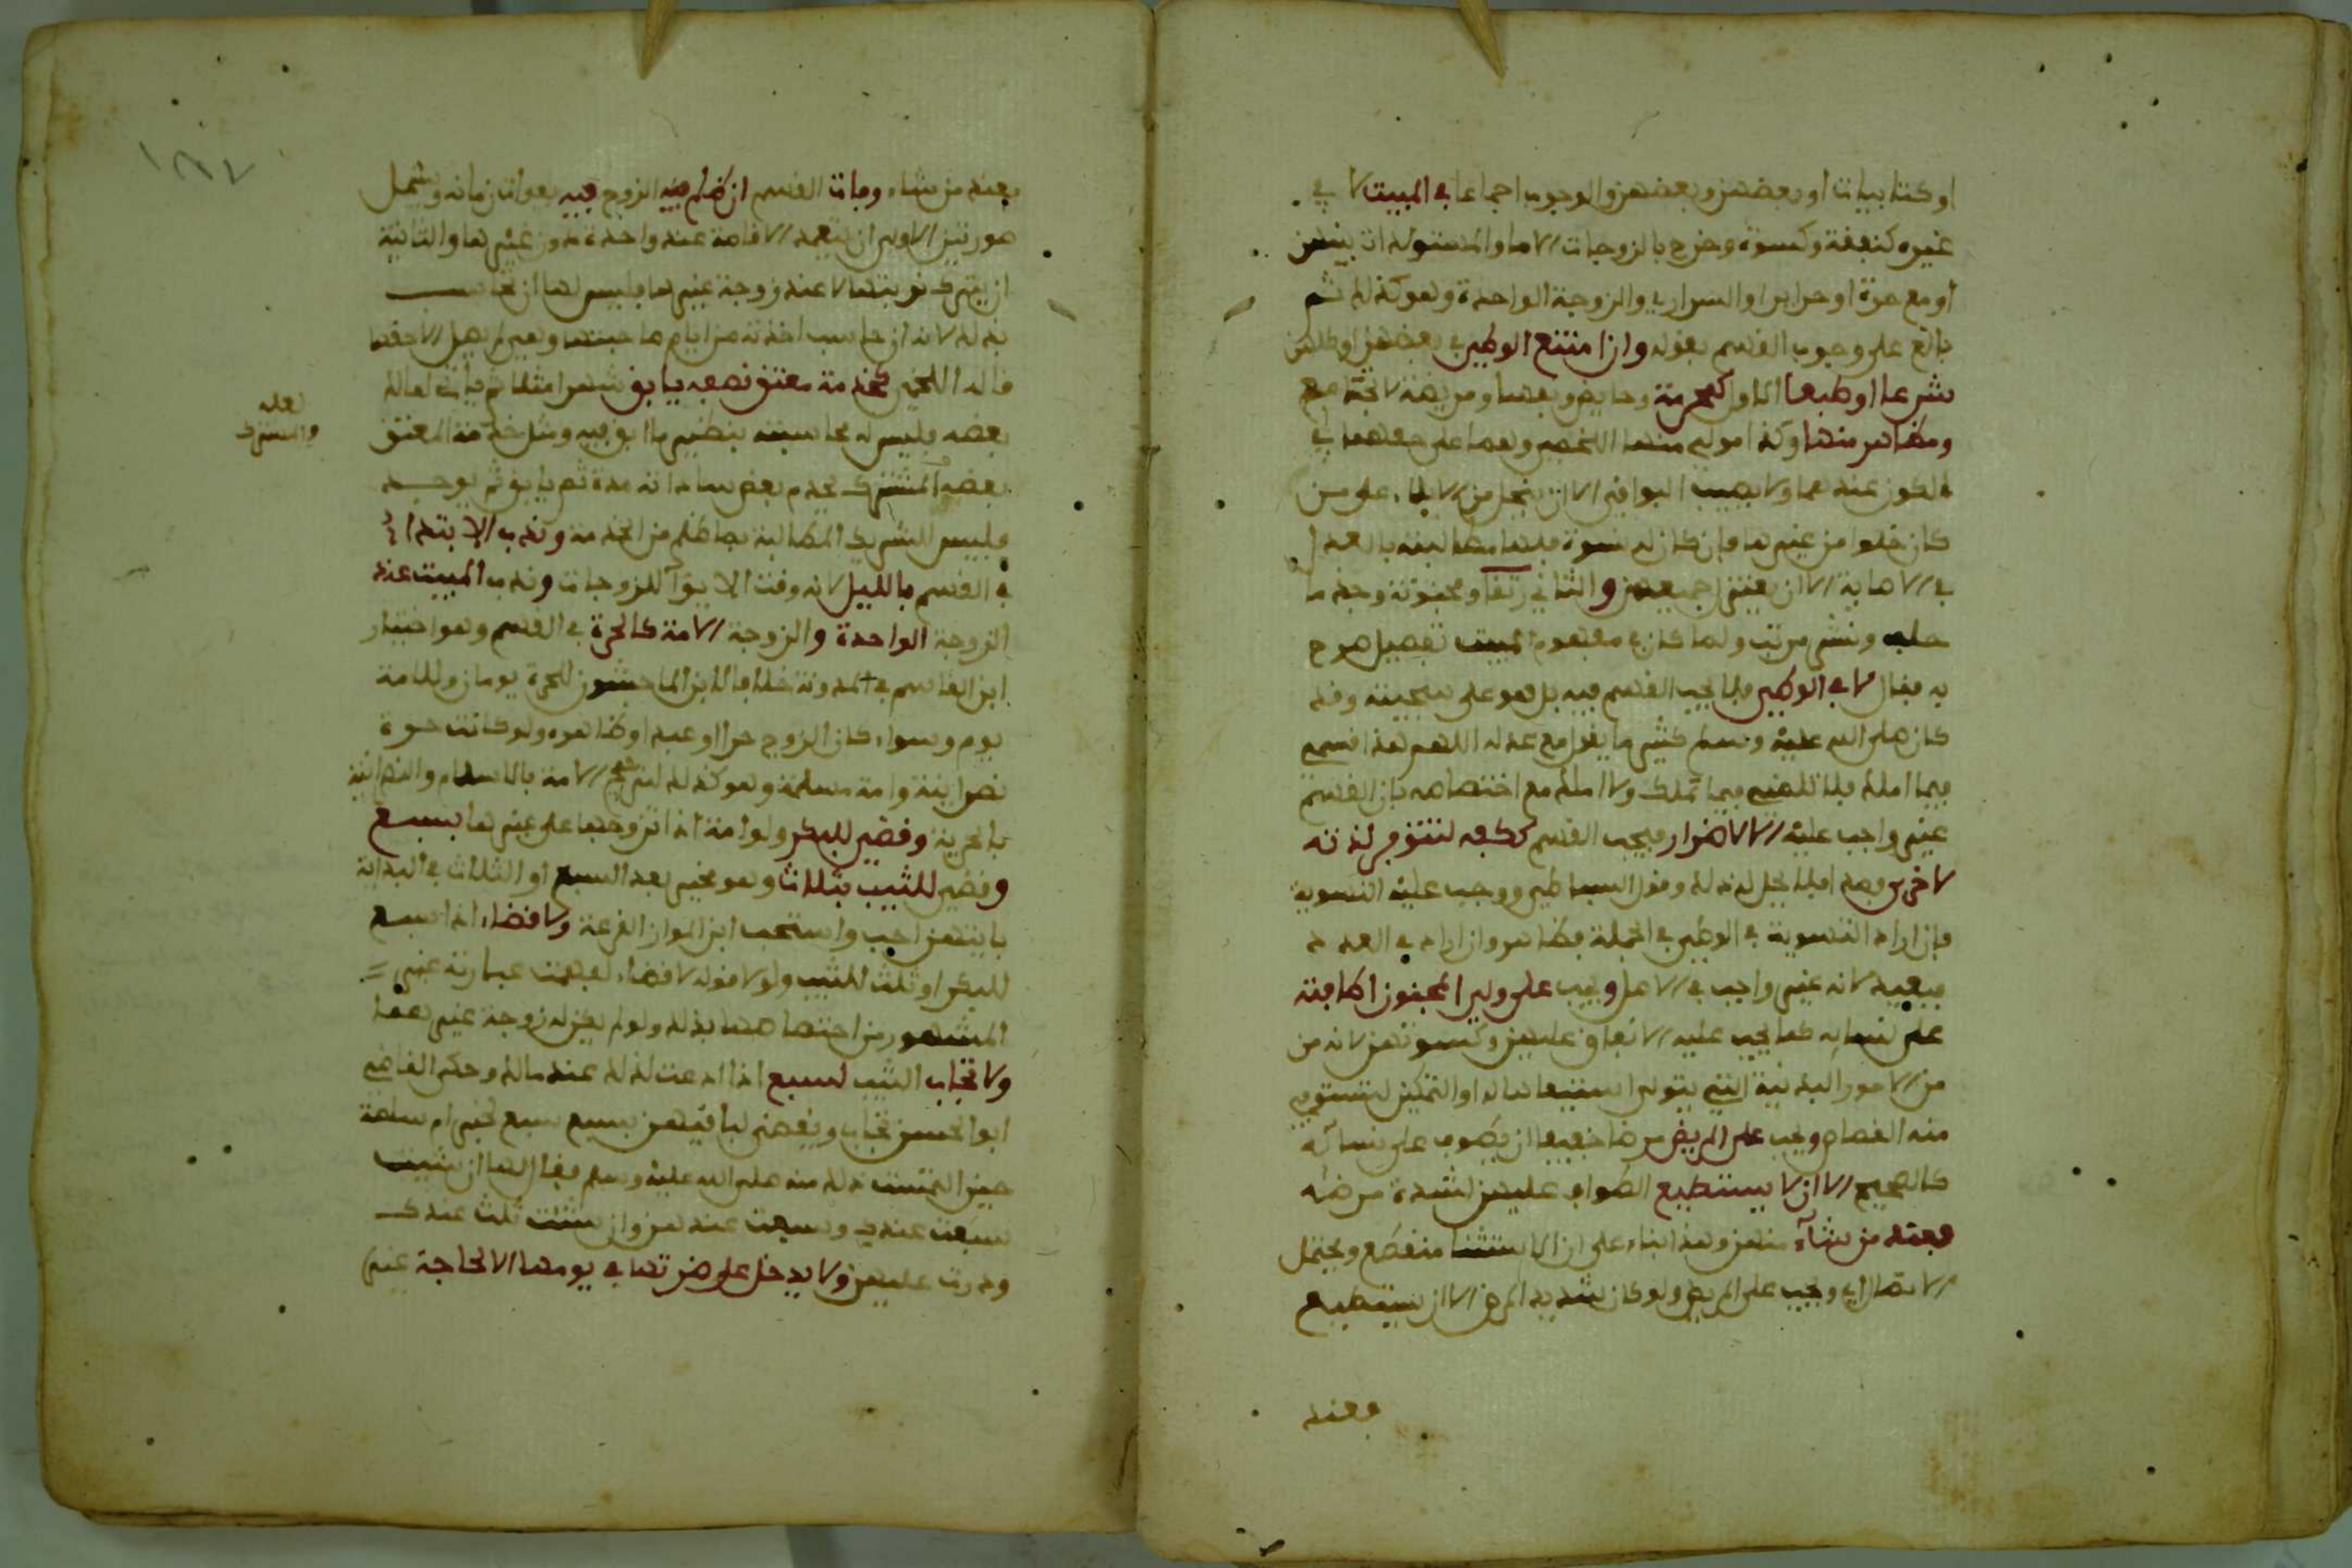 او كتابيات او بعضهن وبعضهن والوجوب اجماعا في المبيت لا في
غيره كنفقة وكسوة وخرج بالزوجات الاما والمستولدات بينهن
او مع حرة او حراير او السراري والزوجة الواحدة وهو كذلك ثم
بالغ على وجوب القسم بقوله وان امتنع الوطئ في بعضهن او كلهن
شرعا او طبعا الاول كمحرمة وحايض ونفسا ومريضة لا تجامع
ومظاهر منها وكذا مولى منها اللخمي وهما على حقهما في
الكون عندهما ولا يصيب البواقي الا ان ينحل من الايلاء على من
كان خلوا من غيرها فإن كان له نسوة فلها مطالبته بالعدل
في الاصابة الا ان يعتزل جميعهن والثاني رتقا ومجنونة وجذما
حلب ونشر مرتب ولما كان في مفهوم المبيت تفصيل صرح
به فقال لا في الوطئ فلا يجب القسم فيه بل هو على سجيته وقد
كان صلى الله عليه وسلم كثيرا ما يقول مع عدله اللهم هذا قسمي
فيما املك فلا تلمني فيما تملك ولا املك مع اختصاصه بان القسم
غير واجب عليه الا لاضرار فيجب القسم ككفه لتتوفر لذته
لاخرى وهذا فلا يحل له ذلك وفوا البساطي ووجب عليه التسوية
فإن اراد التسوية في الوطئ في الجملة فظاهر وان اراد في العدد
فبعيد لانه غير واجب في الاصل ويجب على ولي المجنون اطافته
على نسايه كما يجب عليه الانفاق عليهن وكسوتهن لانه من
من الامور البدنية التي يتولى استيفاها له او التمكين لتستوفي
منه القصاص ويجب على المريض مرضا خفيفا ان يطوف على نسائه
كالصحيح الا ان لا يستطيع الطواف عليهن لشدة مرضه
فعند من شآء منهن وهذا بناء على ان الاستثنا منقطع ويحتمل
الاتصال اي ويجب على المريض ولو كان شديد المرض الا ان يستطيع
فعند
فعند من شاء وفات القسم ان ظلم فيه الزوج فيه بفوات زمانه ويشمل
صورتين الاولى ان يتعمد الاقامة عند واحدة دون غيرها والثانية
ان يترك نوبتها لا عند زوجة غيرها فليس لها ان تحاسب
بذلك لانه ان حاسب اخذته من ايام صاحبتها وهي لم يصل الا حقها
قاله اللخمي كخدمة معتق نصفه يابق شهرا مثلا ثم يات لمالك
بعضه فليس له محاسبته بنظير ما ابق فيه ومثل خدمة المعتق
بعضه المشترك يخدم بعض ساداته مدة ثم يابق ثم يوجد
فليس للشريك المطالبة بما ظلم من الخدمة وندب الابتداء
في القسم بالليل لانه وقت الايوآ للزوجات وندب المبيت عند
الزوجة الواحدة والزوجة الامة كالحرة في القسم وهو اختيار
ابن القاسم في المدونة خلافا لابن الماجشون للحرة يومان وللامة
يوم وسواء كان الزوج حرا او عبدا وظاهره ولو كانت حرة
نصرانية وامة مسلمة وهو كذلك لترجح الامة بالاسلام والنصرانية
بالحرية وقضي للبكر ولو امة اذا تزوجها على غيرها بسبع
وقضي للثيب بثلاث وهو مخير بعد السبع او الثلاث في البداية
بايتهن احب واستحب ابن المواز القرعة ولا قضاء اذا سبع
للبكر او ثلث للثيب ولولا قوله لا قضاء لفهمت عبارته غير
المشهور من اختصاصها بذلك ولو لم يكن له زوجة غيرها
ولا تجاب الثيب لسبع اذا ادعت لذلك عند مالك وحكى القاضي
ابو الحسن تجاب ويقضي لباقيهن بسبع سبع لخبر ام سلمة
حين التمست ذلك منه صلى الله عليه وسلم فقال لها ان شيت
سبعت عندي وسبعت عندهن وان شئت ثلث عندك
ودرت عليهن ولا يدخل على ضرتها في يومها الا لحاجة غير
لعله
والمشترك
١٨٧